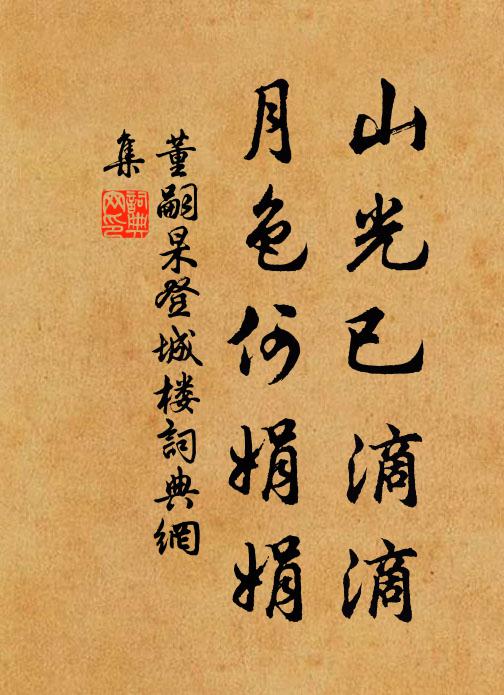 山光已滴滴
月色何娟娟
董嗣杲登城楼詞典網
集
詞典
网印